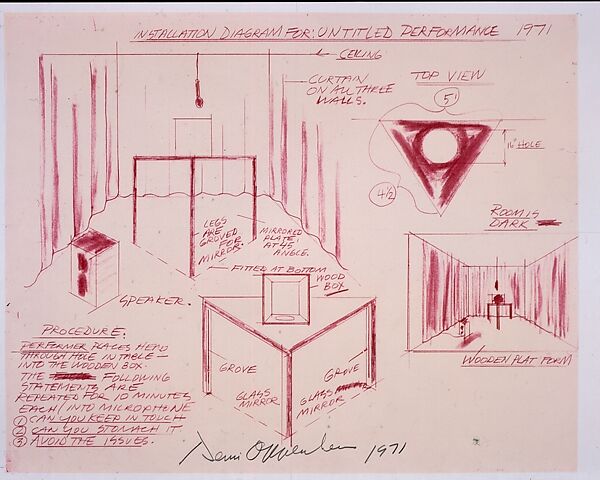 INSTALLATION DIAGRAM FOR: UNTITLED PERFORMANCE 1971
CEILING
CURTAIN
ON ALL THREE
WALLS.
TOP VIEW
5'
16" HOLE
4 1/2
ROOM IS
DARK
LEGS
ARE
GROVED
FOR
MIRRORS.
MIRRORED
PLATE
AT 45
ANGLE.
FITTED AT BOTTOM
WOOD
BOX
SPEAKER.
WOODEN PLAT FORM
GROVE
GROVE
GLASS
MIRROR
GLASS
MIRROR
PROCEDURE:
PERFORMER PLACES HEAD
THROUGH HOLE IN TABLE —
INTO THE WOODEN BOX.
THE FOLLOWING
STATEMENTS ARE
REPEATED FOR 10 MINUTES
EACH/INTO MICROPHONE
1 CAN YOU KEEP IN TOUCH
2 CAN YOU STOMACH IT
3 AVOID THE ISSUES.
Dennis Oppenheim 1971